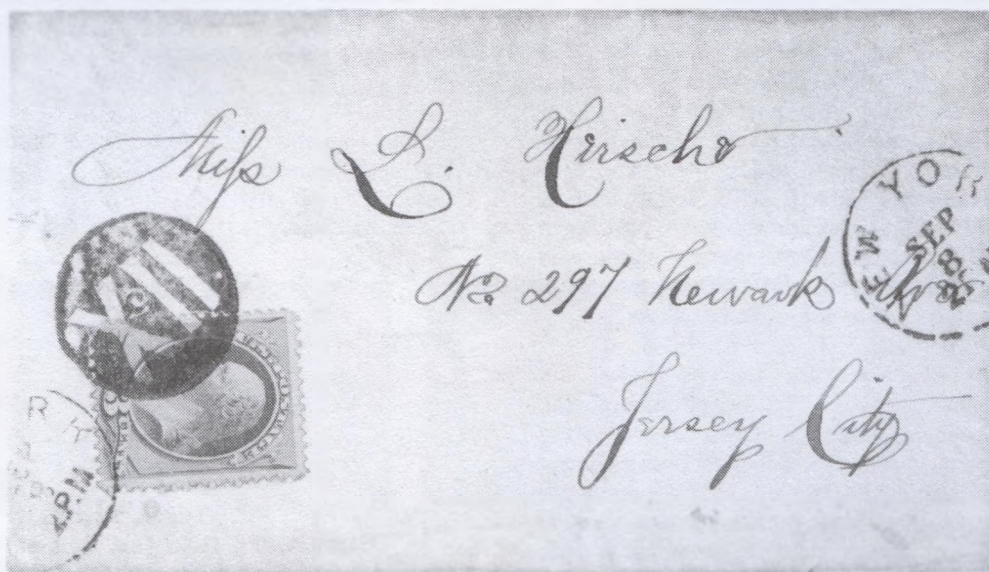 Miss L. Hirsche
No 297 Newark
Jersey City
NEW YOR
SEP
8
R Y
P.M